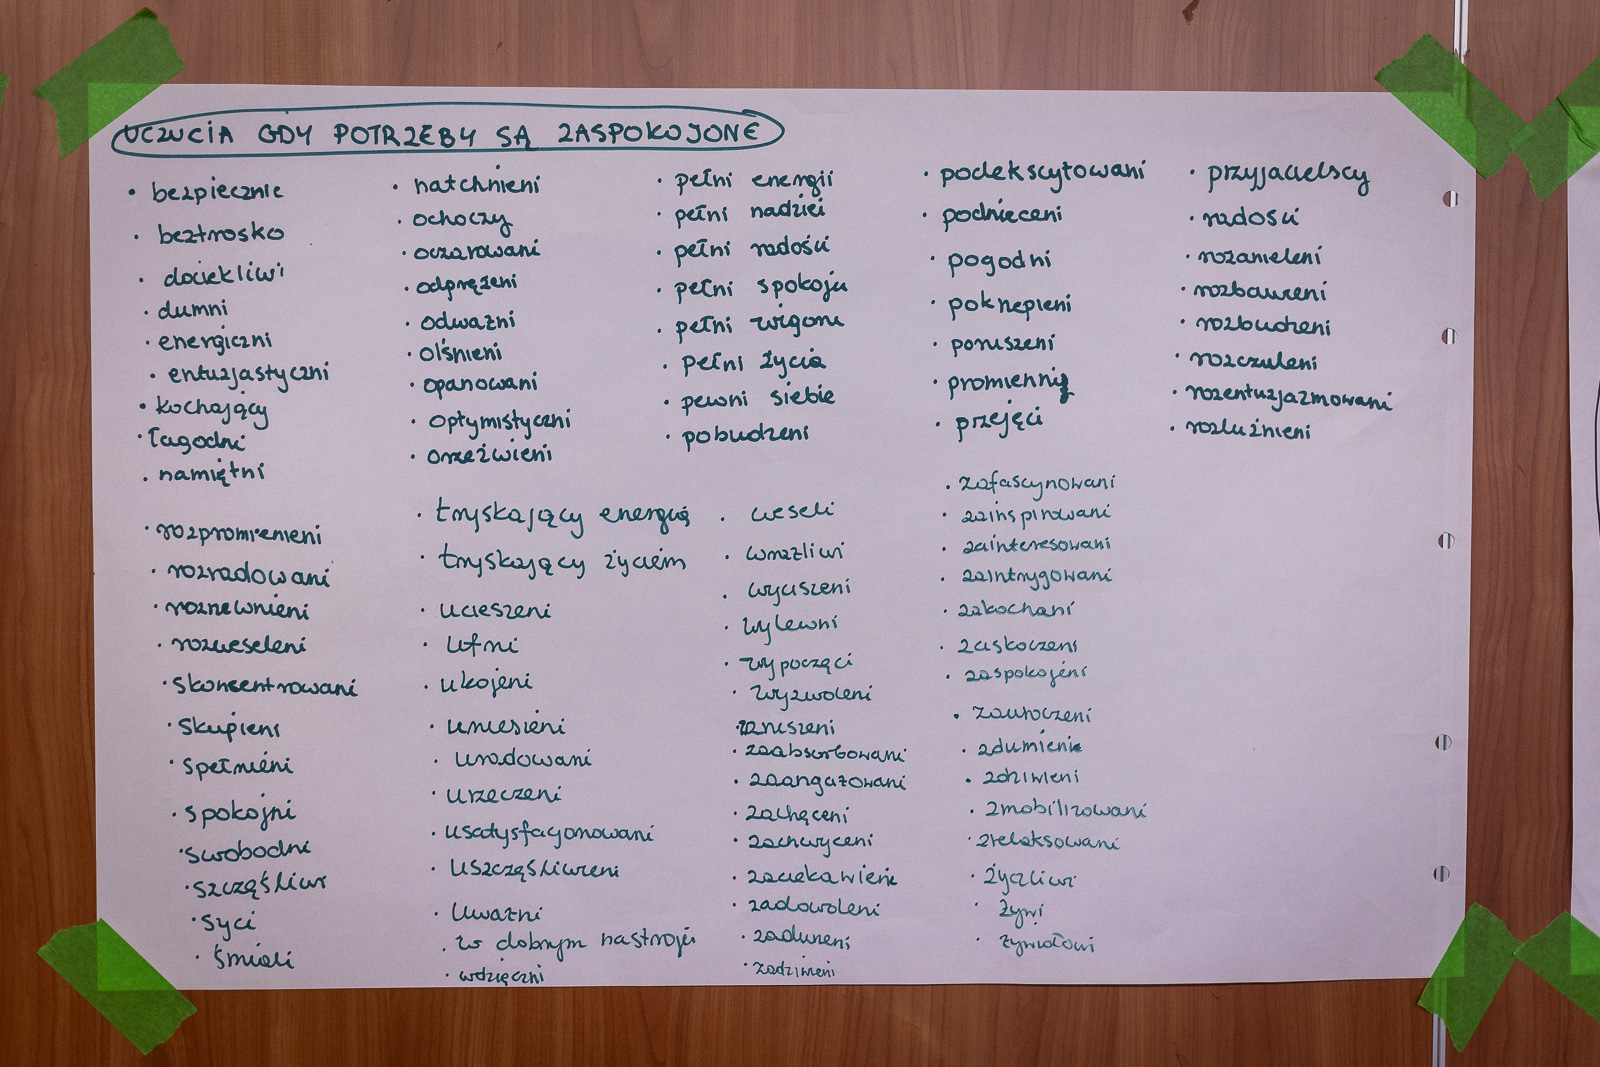 UCZUCIA GDY POTRZEBY SĄ ZASPOKOJONE
• bezpiecznie
• beztrosko
• dociekliwi
• dumni
• energiczni
• entuzjastyczni
• kochający
• łagodni
• namiętni
• natchnieni
• ochoczy
• oczarowani
• odprężeni
• odważni
• olśnieni
• opanowani
• optymistyczni
• orzeźwieni
• pełni energii
• pełni nadziei
• pełni radości
• pełni spokoju
• pełni wigoru
• pełni życia
• pewni siebie
• pobudzeni
• podekscytowani
• podnieceni
• pogodni
• pokrzepieni
• poruszeni
• promienni
• przejęci
• przyjacielscy
• radości
• rozanieleni
• rozbawieni
• rozbudzeni
• rozczuleni
• rozentuzjazmowani
• rozluźnieni
• rozpromienieni
• rozradowani
• rozrzewnieni
• rozweseleni
• skoncentrowani
• skupieni
• spełnieni
• spokojni
• swobodni
• szczęśliwi
• syci
• śmiali
• tryskający energią
• tryskający życiem
• ucieszeni
• ufni
• ukojeni
• uniesieni
• uradowani
• urzeczeni
• usatysfacjonowani
• uszczęśliwieni
• uważni
• w dobrym nastroju
• wdzięczni
• weseli
• wrażliwi
• wyciszeni
• wylewni
• wypoczęci
• wyzwoleni
• wzruszeni
• zaabsorbowani
• zaangażowani
• zachęceni
• zachwyceni
• zaciekawieni
• zadowoleni
• zadumeni
• zadziwieni
• zafascynowani
• zainspirowani
• zainteresowani
• zaintrygowani
• zakochani
• zaskoczeni
• zaspokojeni
• zauroczeni
• zdumieni
• zdziwieni
• zmobilizowani
• zrelaksowani
• życzliwi
• żywi
• żywiołowi